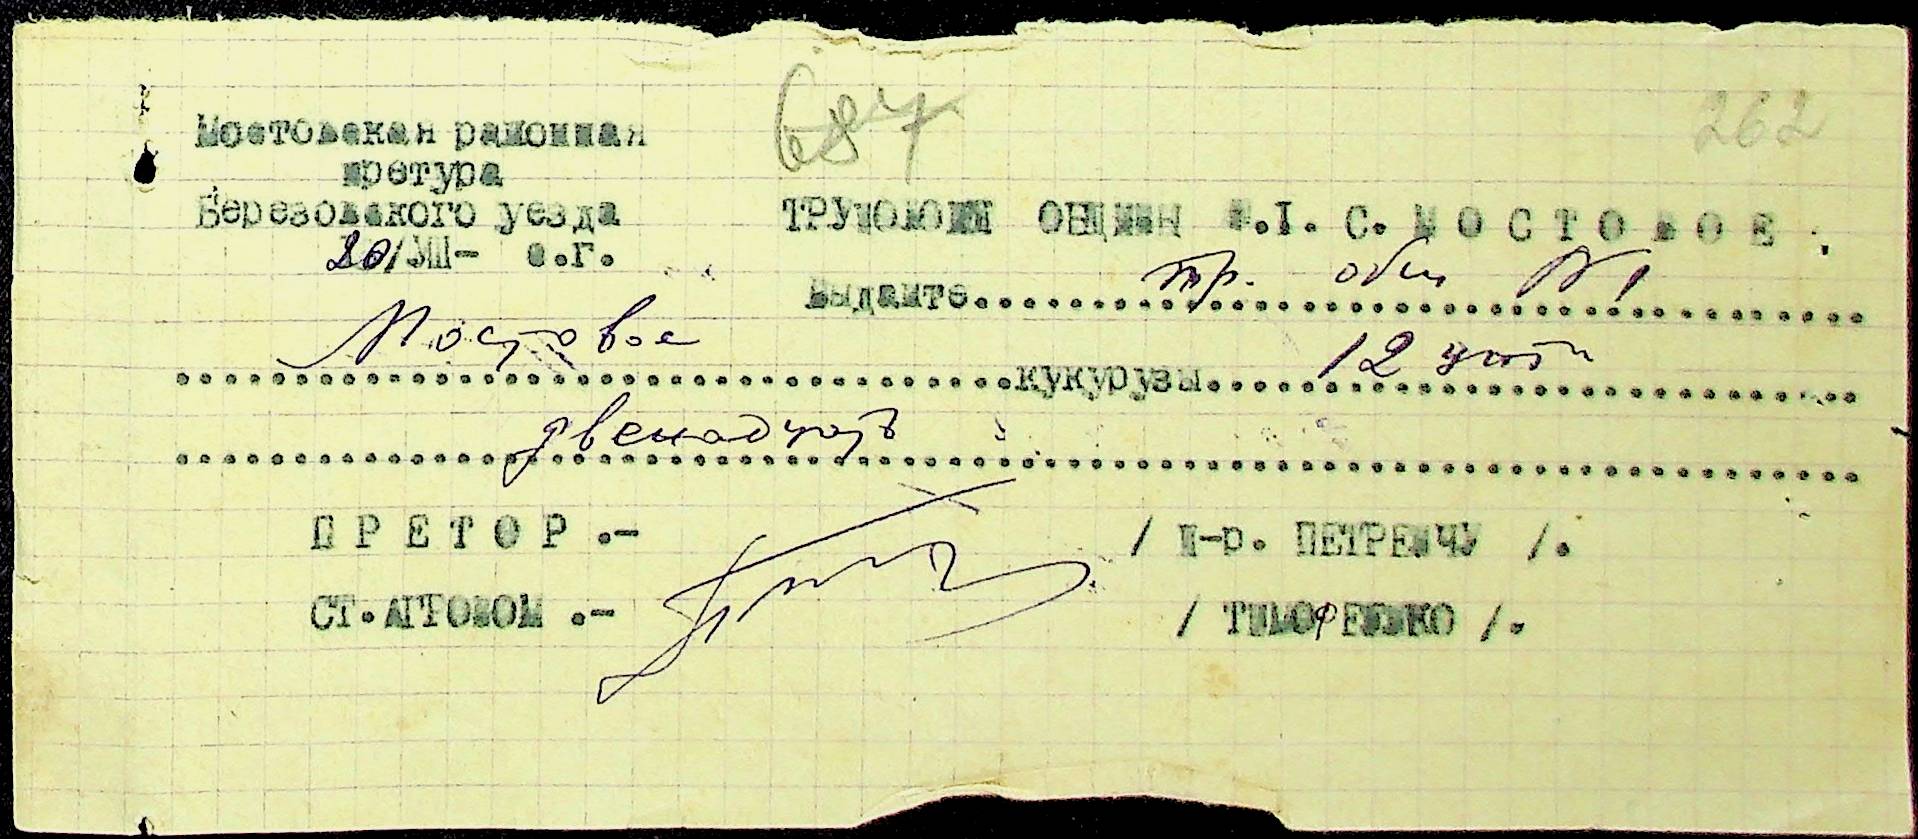 262
Мостовская районная
претура
Березовского уезда
20/VIII- с.г.
ТРУДОВОЙ ОБЩИНЫ №.I. С. МОСТОВОЕ.
Выдайте.......... тр. общ №1
Мостовое ..........кукурузы.......... 12 цнт
двенадцать
ПРЕТОР.-
/ П-р. ПЕТРЕНЧУ /.
СТ.АГРОНОМ.-
/ ТИМОФЕЕНКО /.